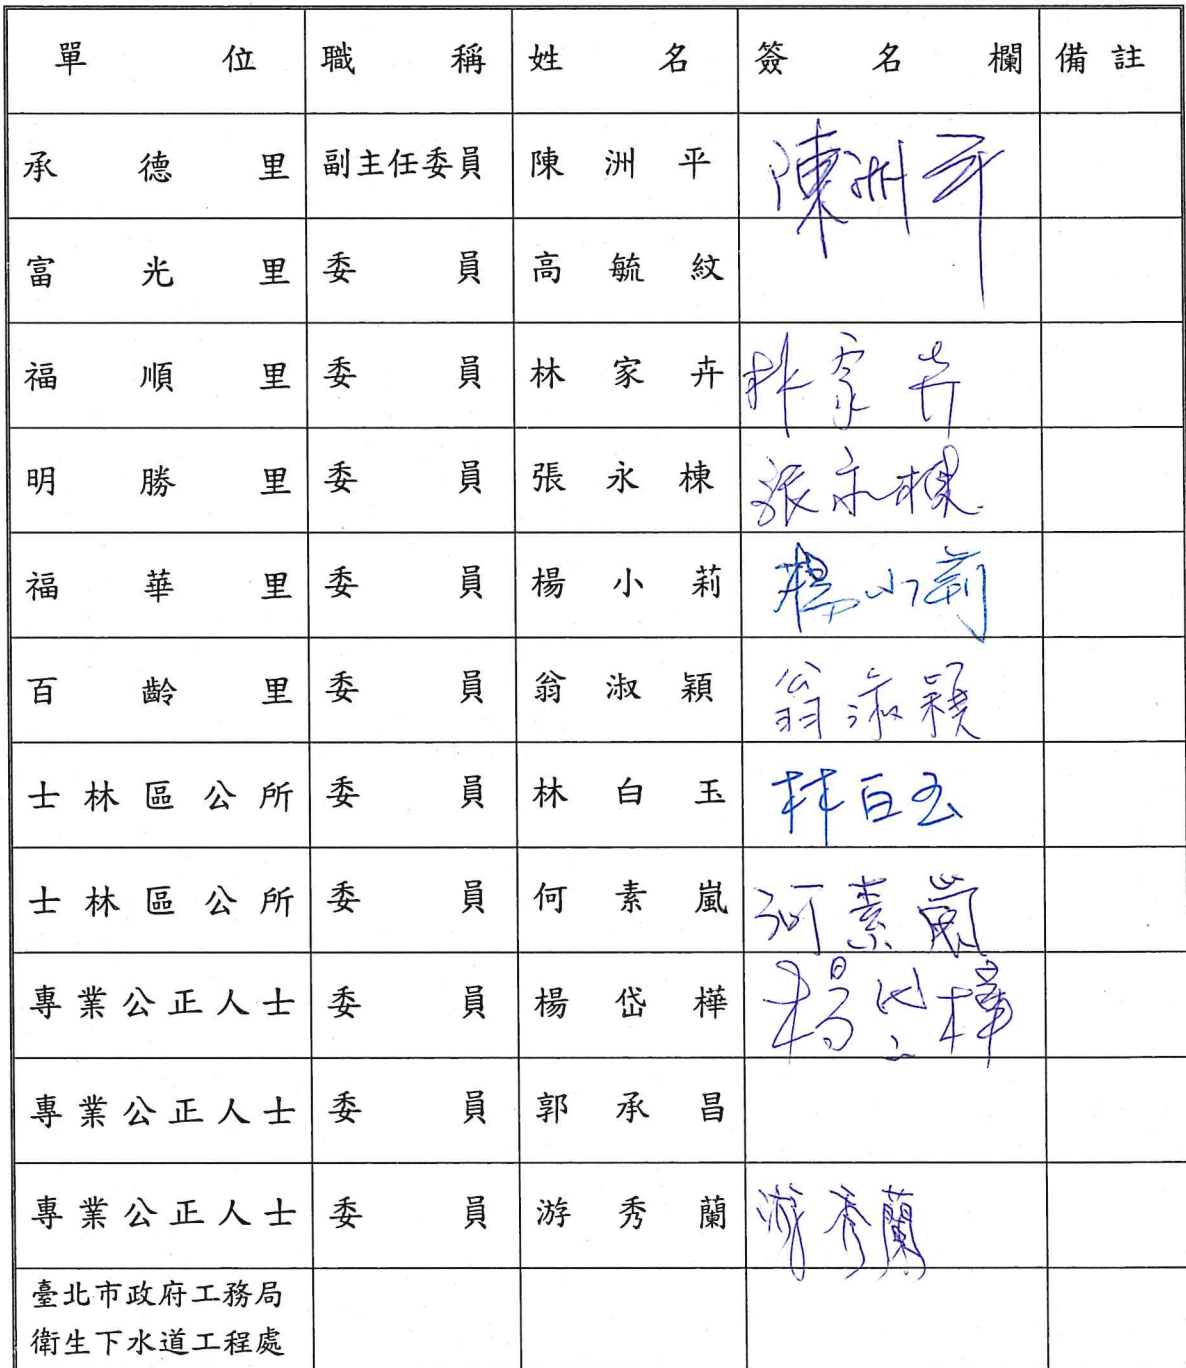 單位 職稱 姓名 簽名欄 備註
承德里 副主任委員 陳洲平 陳洲平
富光里 委員 高毓紋
福順里 委員 林家卉 林家卉
明勝里 委員 張永棟 張永棟
福華里 委員 楊小莉 楊小莉
百齡里 委員 翁淑穎 翁淑穎
士林區公所 委員 林白玉 林白玉
士林區公所 委員 何素嵐 何素嵐
專業公正人士 委員 楊岱樺 楊岱樺
專業公正人士 委員 郭承昌
專業公正人士 委員 游秀蘭 游秀蘭
臺北市政府工務局
衛生下水道工程處